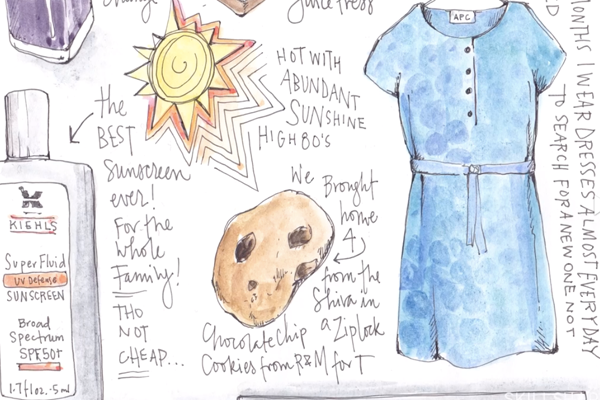 orange
Juice Press
HOT WITH
ABUNDANT
SUNSHINE
HIGH 80's
the
BEST
Sunscreen
ever!
For the
whole
Family!
THO
NOT
CHEAP...
KIEHL'S
Super Fluid
UV Defense
SUNSCREEN
Broad
Spectrum
SPF 50+
1.7 fl oz. · 5 ml
We Brought
home
4
from the
Shiva in
a Ziplock
Chocolate Chip
Cookies from R&M for T
APC
MONTHS I WEAR DRESSES ALMOST EVERYDAY
TO SEARCH FOR A NEW ONE. NOT